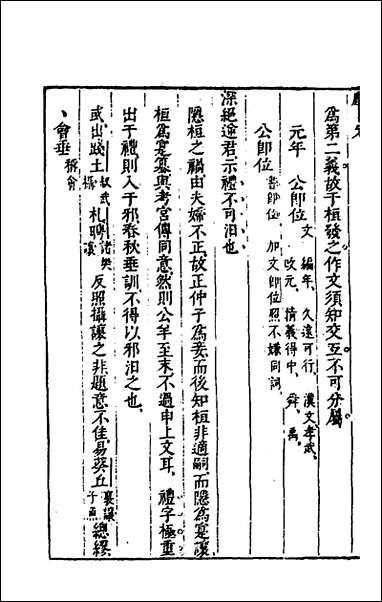 為第二義故于桓發之作文須知交互不可分屬
元年　公即位　文　編年、久遠可行、漢文孝武、改元、情義得中、舜、禹、
公即位　書即位　加文即位照不嫌同詞
深絕途君示禮不可汨也
隱桓之禍由夫婦不正故正仲子為妾而後知桓非適嗣而隱為寔讓
桓為寔簒與考宮傳同意然則公羊至末不過申上文耳、禮字極重
出于禮則入于邪春秋垂訓不得以邪汨之也、
或出踐土　叔武攝　札聘　諸樊讓　反照攝讓之非題意不佳易葵丘　襄讓子魚　總繆
、會垂　稱會